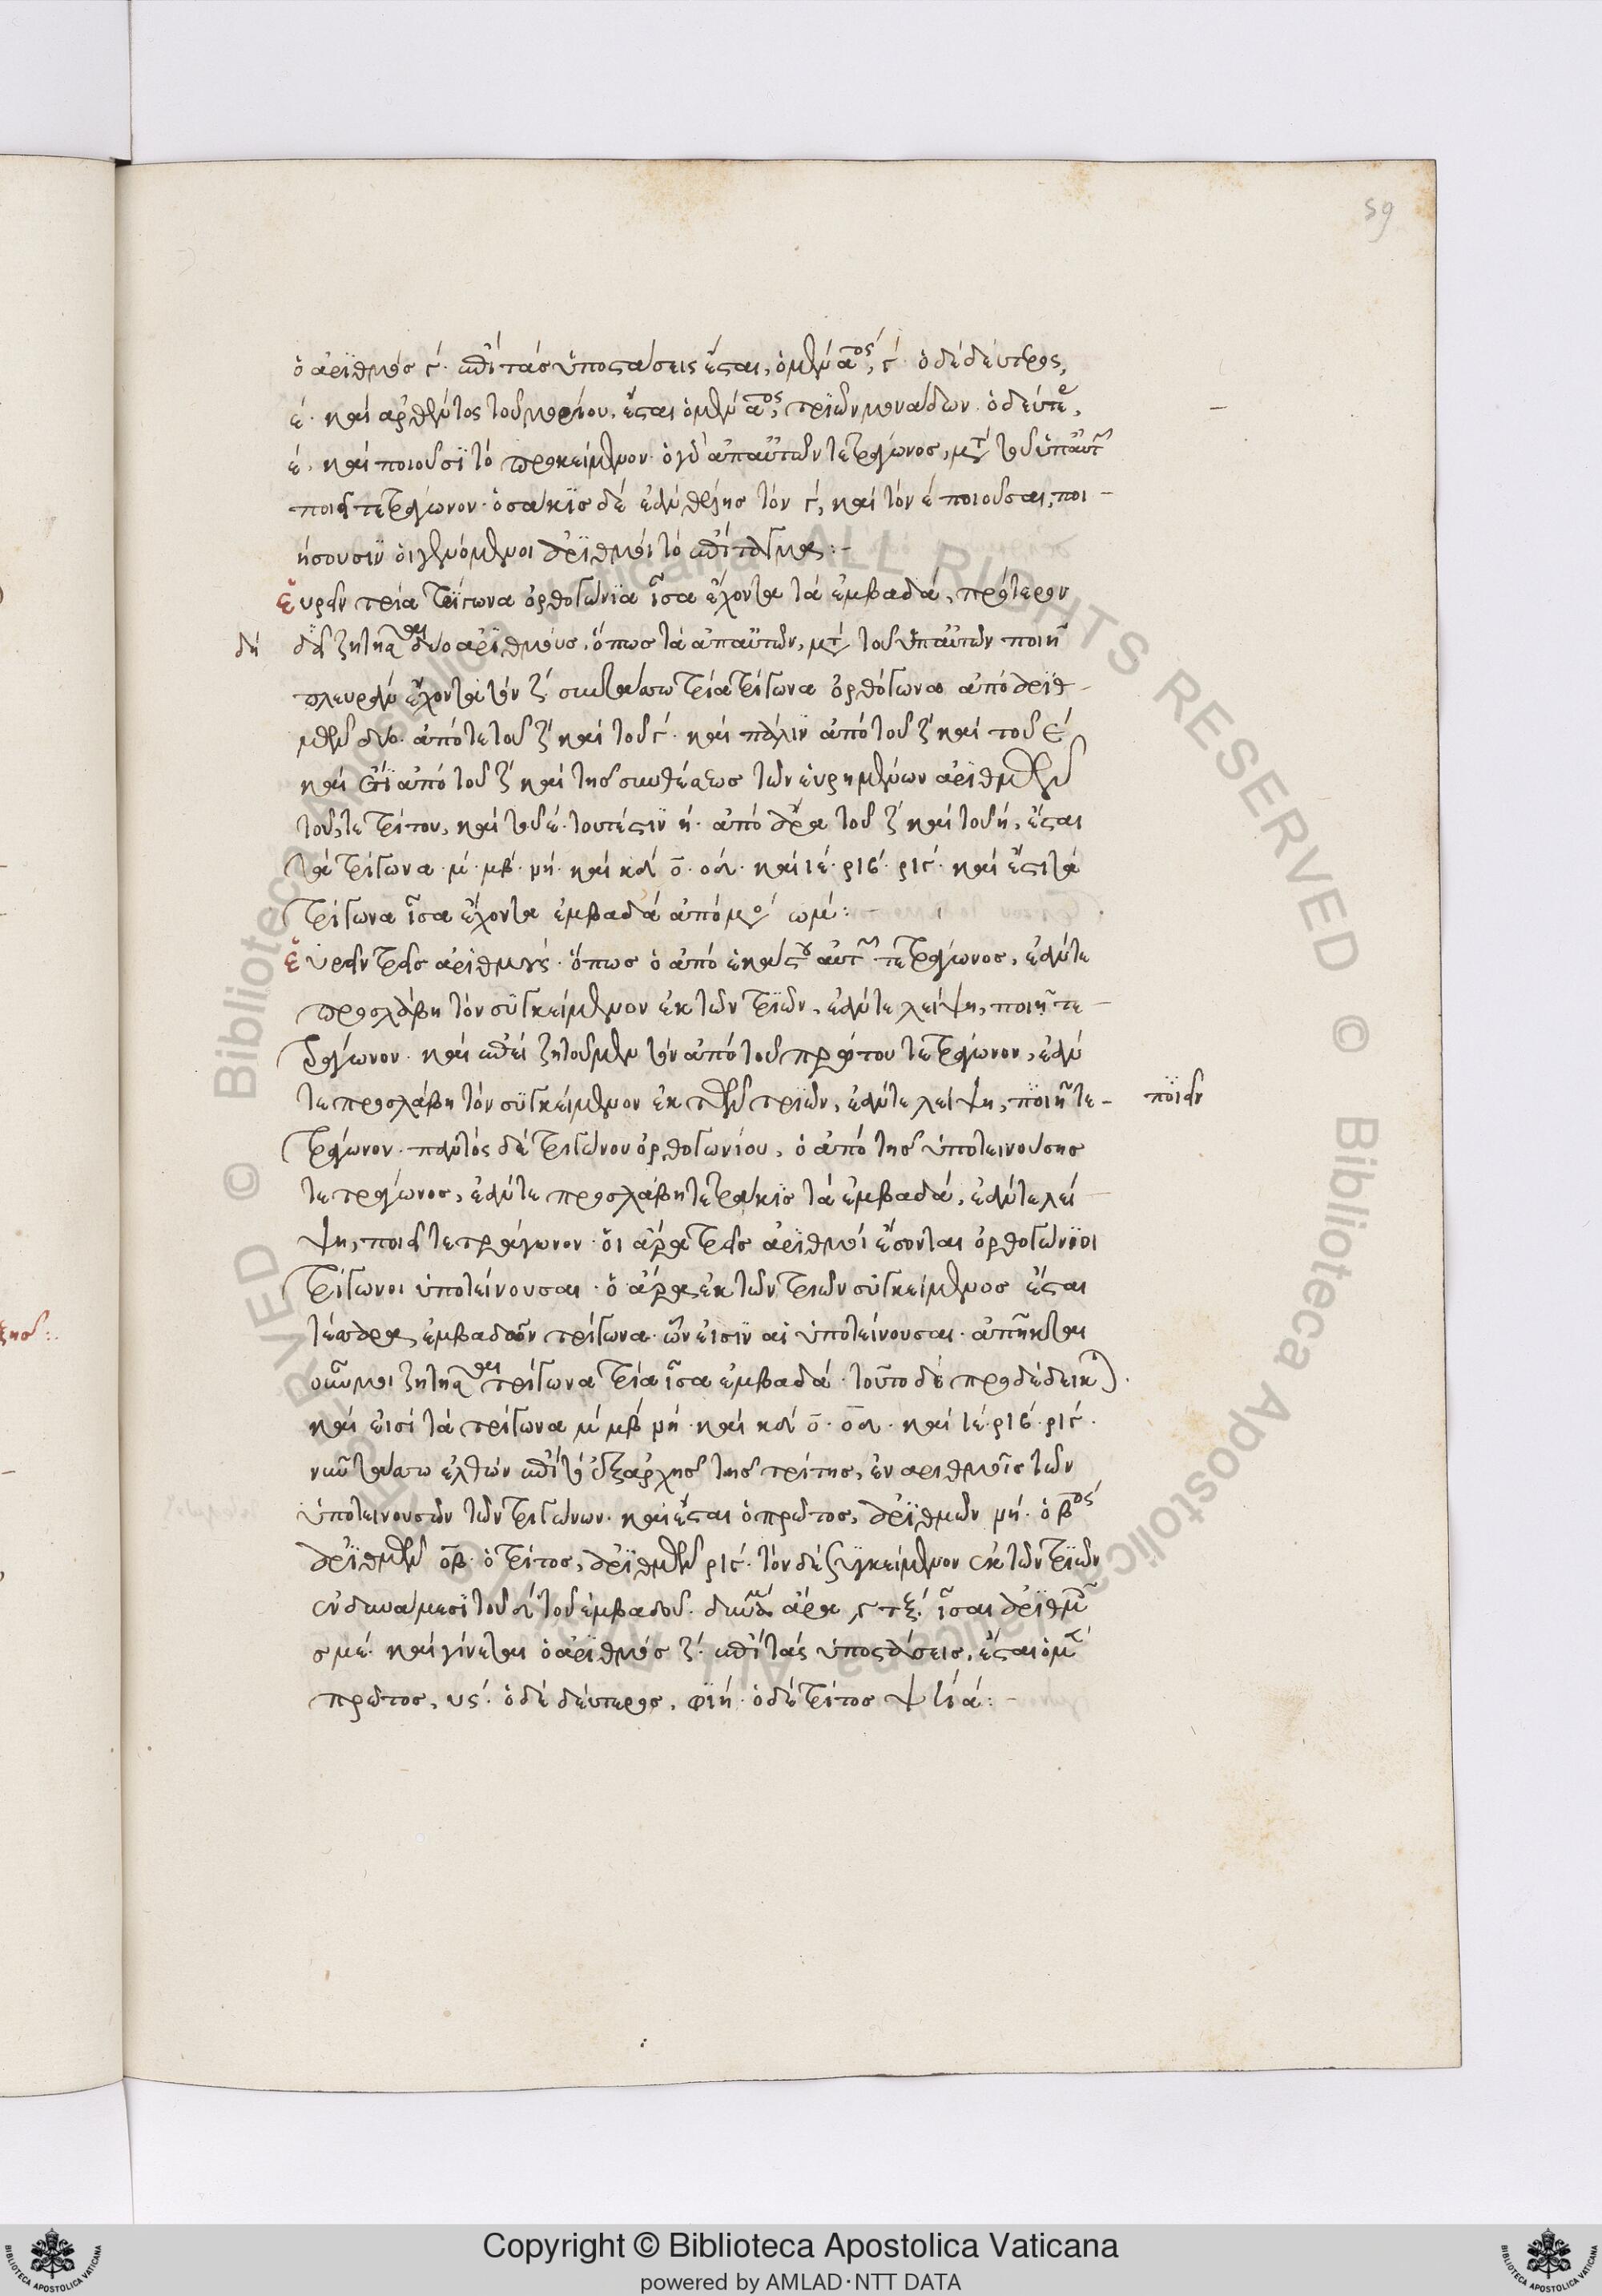 59
ὁ ἀριθμός ϛ´. ἐπί τάς ὑποστάσεις ἔσται, ὁ μέν α^ος, ϛ´. ὁ δέ δεύτερος,
έ. καί ἀφθέντος τοῦ μορίου. ἔσται ὁ μέν α^ος, τριῶν μονάδων. ὁ δεύτε^ρ,
έ. καί ποιοῦσι τό προκείμενον. ὁ γάρ ἀπ' αὐτῶν τετράγωνος, μετά τοῦ ὑπ' αὐτῶν
ποιεῖ τετράγωνον. ὁσάκις δέ
τόν ϛ´, καί τόν έ ποιοῦσαι, ποι-
ήσουσιν οἱ γενόμενοι ἀριθμοί τό ἐπίταγμα:-
Εὑρεῖν τρία τρίγωνα ὀρθογώνια ἴσα ἔχοντα τά ἐμβαδά, πρότερον
δή
δεῖ ζητῆσαι δύο ἀριθμούς. ὅπως τά ἀπ' αὐτῶν, μετά τοῦ ὑπ' αὐτῶν ποιῇ
πλευράν ἔχοντα τόν ζ´. συνιστάσω τρία τρίγωνα ὀρθόγωνα ἀπό ἀριθ-
μῶν δύο. ἀπό τε τοῦ ζ´ καί τοῦ ϛ´. καί πάλιν ἀπό τοῦ ζ´ καί τοῦ έ
καί ἔτι ἀπό τοῦ ζ´ καί τῆς συνθέσεως τῶν εὑρημένων ἀριθμῶν
τοῦ, τε τρίτου, καί τοῦ έ. τουτέστιν ή. ἀπό ἄρα τοῦ ζ´ καί τοῦ ή, ἔσται
τά τρίγωνα. μ´. μβ´. μή. καί κδ´ ο̄. οδ. καί ιέ. ριβ´. ριγ´. καί ἔστι τά
τρίγωνα ἴσα ἔχοντα ἐμβαδά ἀπό μο´ ωμ´:-
Εὑρεῖν τρεῖς ἀριθμούς. ὅπως ὁ ἀπό ἑκάστου αὐτῶν τετράγωνος, ἐάν τε
προσλάβῃ τόν συγκείμενον ἐκ τῶν τριῶν, ἐάν τε λείψῃ, ποιῇ τε-
τράγωνον. καί ἐπεί ζητοῦμεν τόν ἀπό τοῦ πρώτου τετράγωνον, ἐάν
τε προσλάβῃ τόν συγκείμενον ἐκ τῶν τριῶν, ἐάν τε λείψῃ, ποιῇ τε-
ποιεῖν
τράγωνον. παντός δέ τριγώνου ὀρθογωνίου, ὁ ἀπό τῆς ὑποτεινούσης
τετράγωνος, ἐάν τε προσλάβῃ τετράκις τά ἐμβαδά, ἐάν τε λεί
ψῃ, ποιεῖ τετράγωνον. οἱ ἄρα τρεῖς ἀριθμοί ἔσονται ὀρθογώνιοι
τρίγωνοι ὑποτείνουσαι. ὁ ἄρα ἐκ τῶν τριῶν συγκείμενος ἔσται
τέσσαρα ἐμβαδῶν τρίγωνα. ὧν εἰσίν αἱ ὑποτείνουσαι. ἀπῆκται
οὖν μοι ζητῆσαι τρίγωνα τρία ἴσα ἐμβαδά. τοῦτο δέ προδέδεικται.
καί εἰσί τά τρίγωνα μ´ μβ´ μή. καί κδ´ ο̄. οδ. καί ιέ. ριβ´. ριγ´.
νῦν τάσσω ἐλθών ἐπί τό ἐξ ἀρχῆς τῆς τρίτης, ἐν ἀριθμοῖς τῶν
ὑποτεινουσῶν τῶν τριγώνων. καί ἔσται ὁ πρῶτος, ἀριθμῶν μή. ὁ β^ος
ἀριθμῶν οβ. ὁ τρίτος, ἀριθμῶν ριγ´. τόν δέ συγκείμενον ἐκ τῶν τριῶν
ἐν δυνάμεσι τοῦ δ´ τοῦ ἐμβαδοῦ. δυνάμεις ἄρα ͵γτξ´. ἴσαι ἀριθμοῖς
σμέ. καί γίνεται ὁ ἀριθμός ζ´. ἐπί τάς ὑποστάσεις, ἔσται ὁ μέν
πρῶτος, υϛ´. ὁ δέ δεύτερος, φιή. ὁ δέ τρίτος ψϟά:-
Copyright © Biblioteca Apostolica Vaticana
powered by AMLAD·NTT DATA